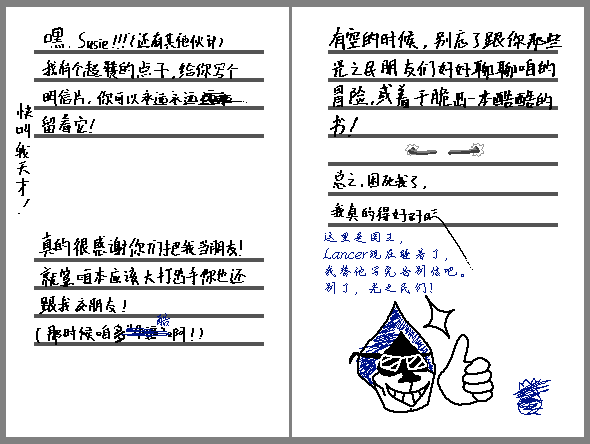 嘿，Susie!!!(还有其他伙计)
我有个超赞的点子，给你写个
明信片，你可以永远永远
留着它！
快叫我天才！
真的很感谢你们把我当朋友！
就算咱本应该大打出手你也还
跟我交朋友！
(那时候咱多酷啊！)
有空的时候，别忘了跟你那些
光之民朋友们好好聊聊咱的
冒险，或着干脆出一本酷酷的
书！
总之，困死我了，
我真的得好好
这里是国王，
Lancer现在睡着了，
我替他写完告别信吧。
别了，光之民们！